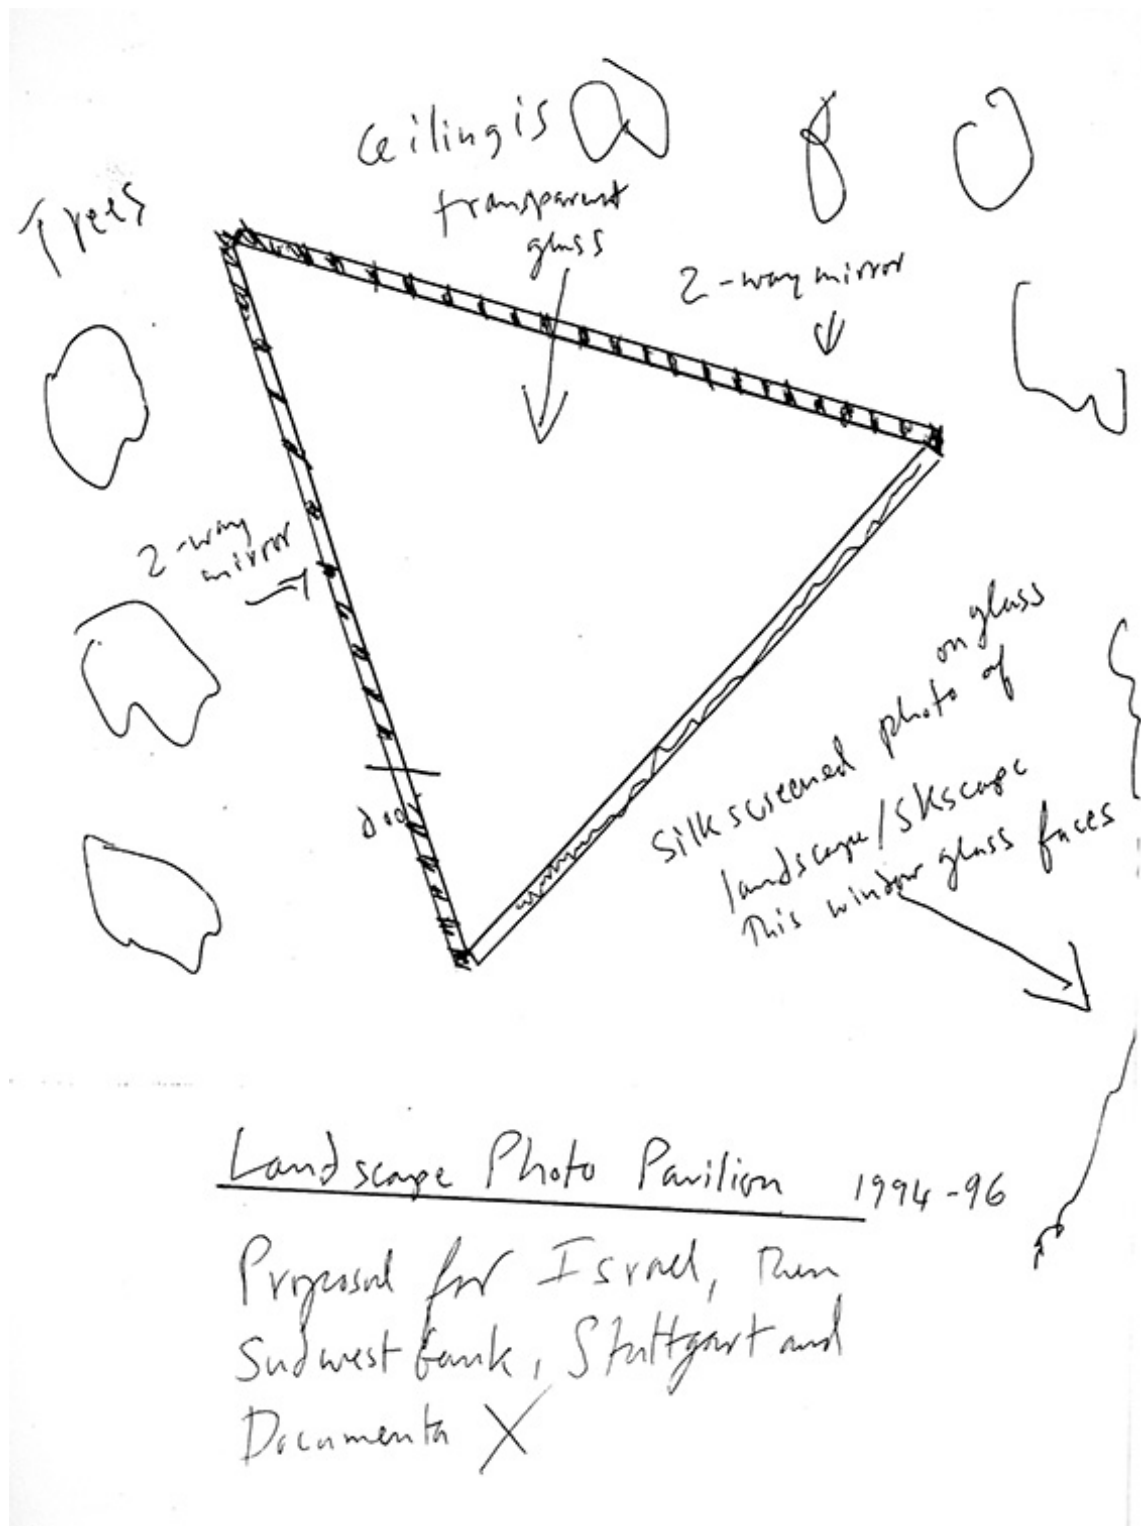 Ceiling is
transparent
glass
Trees
2-way mirror
2-way
mirror
door
on glass
Silkscreened photo of
landscape/Skscape
This window glass faces
Landscape Photo Pavilion 1994-96
Proposal for Israel, Then
Sudwest bank, Stuttgart and
Documenta X